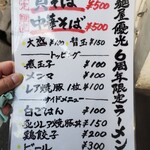 麺屋優光 6周年限定ラーメン
貝そば ¥500
中華そば ¥500
大盛 ¥100 替玉 ¥150
トッピング
煮玉子 ¥100
メンマ ¥100
レア焼豚 1枚 ¥100
サイドメニュー
白ごはん ¥100
炙りレア焼豚丼 ¥150
鶏餃子 ¥200
ビール ¥300